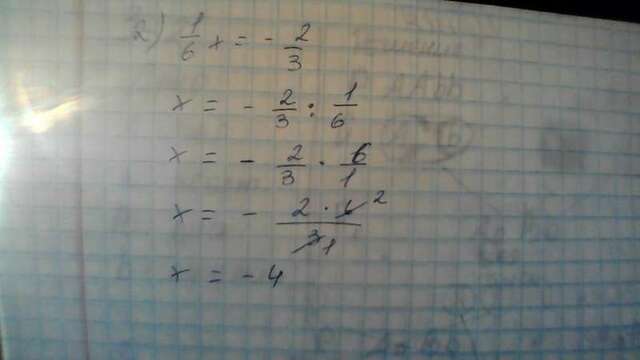 2) 1/6 x = - 2/3
x = - 2/3 : 1/6
x = - 2/3 · 6/1
x = - (2 · 6 2)/(3 1)
x = - 4